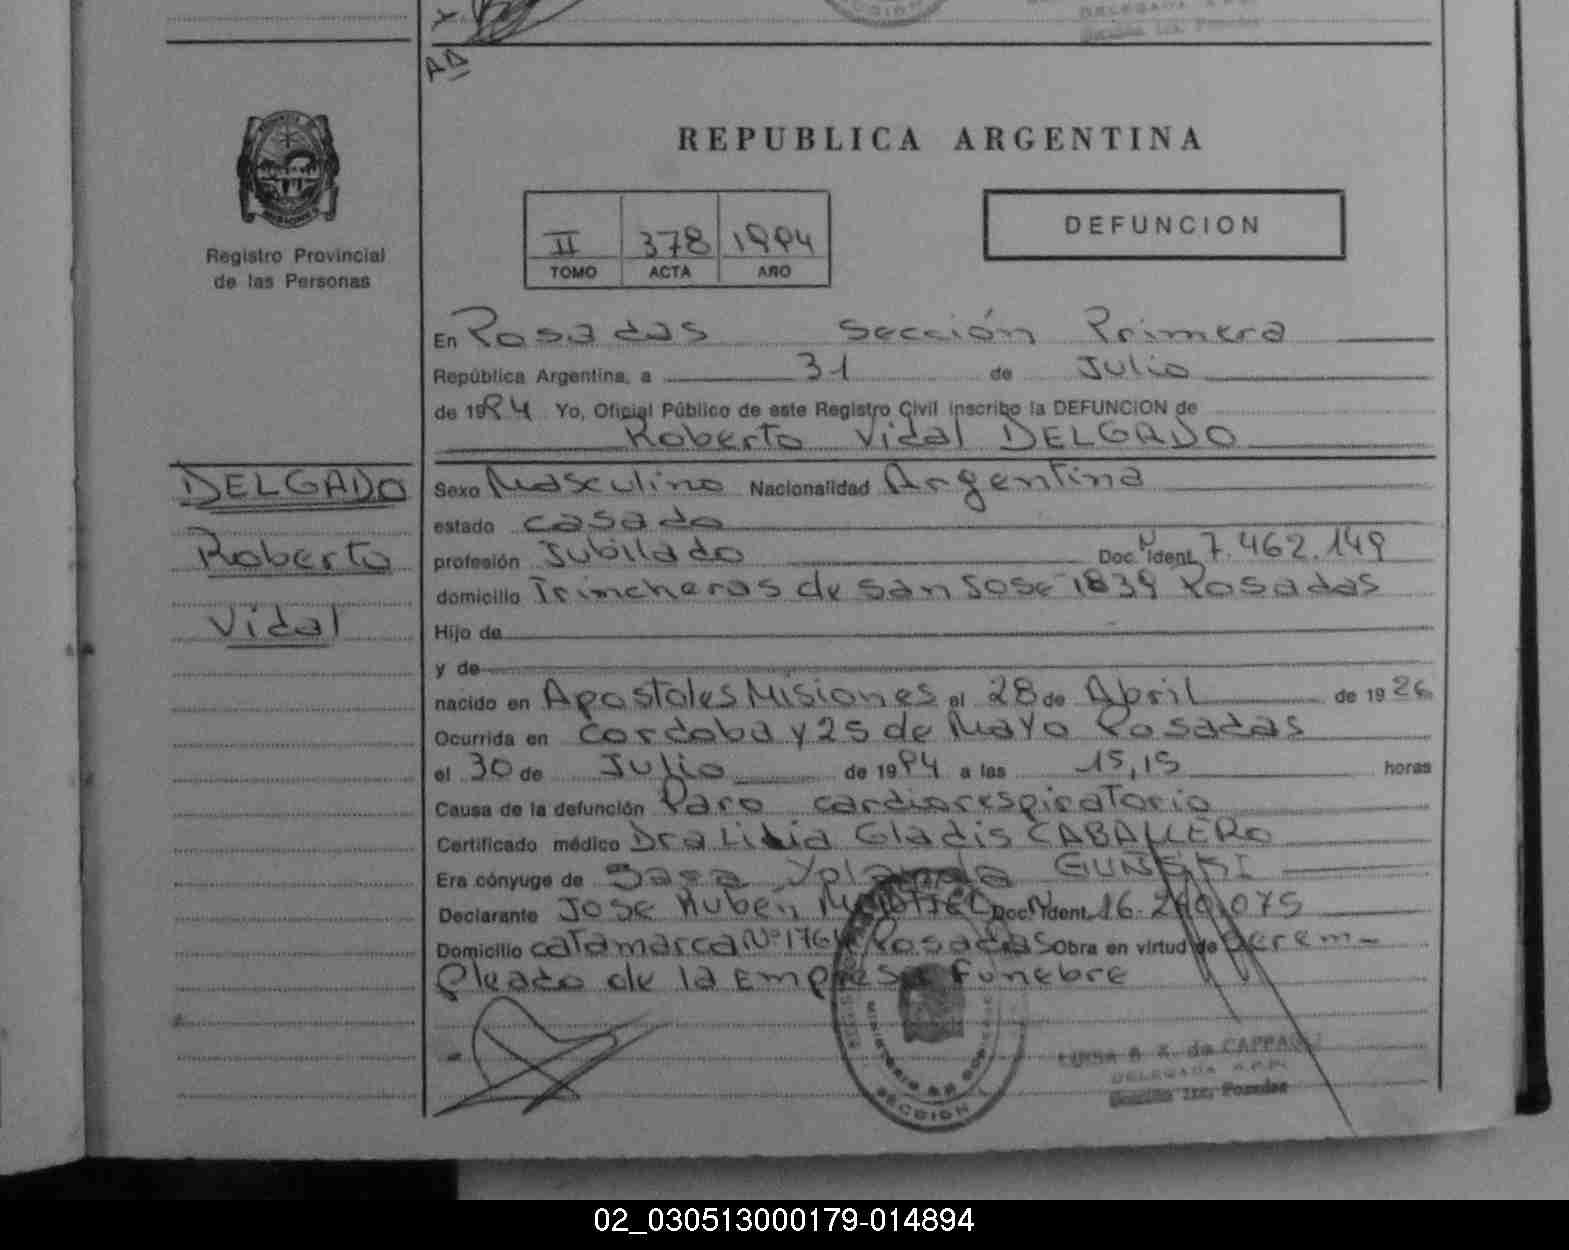 SECCION
DELEGADA A.P.P.
Sección 1ra. Posadas
AD
REPUBLICA ARGENTINA
Registro Provincial
de las Personas
II 378 1994
TOMO ACTA AÑO
DEFUNCION
En Posadas Sección Primera
República Argentina, a 31 de Julio
de 1994 Yo, Oficial Público de este Registro Civil inscribo la DEFUNCION de
Roberto Vidal DELGADO
DELGADO
Roberto
Vidal
Sexo Masculino Nacionalidad Argentina
estado casado
profesión Jubilado Doc. N Ident. 7.462.149
domicilio Trincheras de San Jose 1839 Posadas
Hijo de
y de
nacido en Apostoles Misiones el 28 de Abril de 1926
Ocurrida en Cordoba y 25 de Mayo Posadas
el 30 de Julio de 1994 a las 15,15 horas
Causa de la defunción Paro cardiorespiratorio
Certificado médico Dra Lidia Gladis CABALLERO
Era cónyuge de Sara Yolanda
Declarante Jose Ruben Doc. N Ident. 16. .075
Domicilio catamarca Nº 1764 Posadas Obra en virtud de ser em-
pleado de la Empresa Funebre
MINISTERIO DE GOBIERNO
SECCION 1
LUISA de
DELEGADA A.P.P.
Sección 1ra. Posadas
02_030513000179-014894